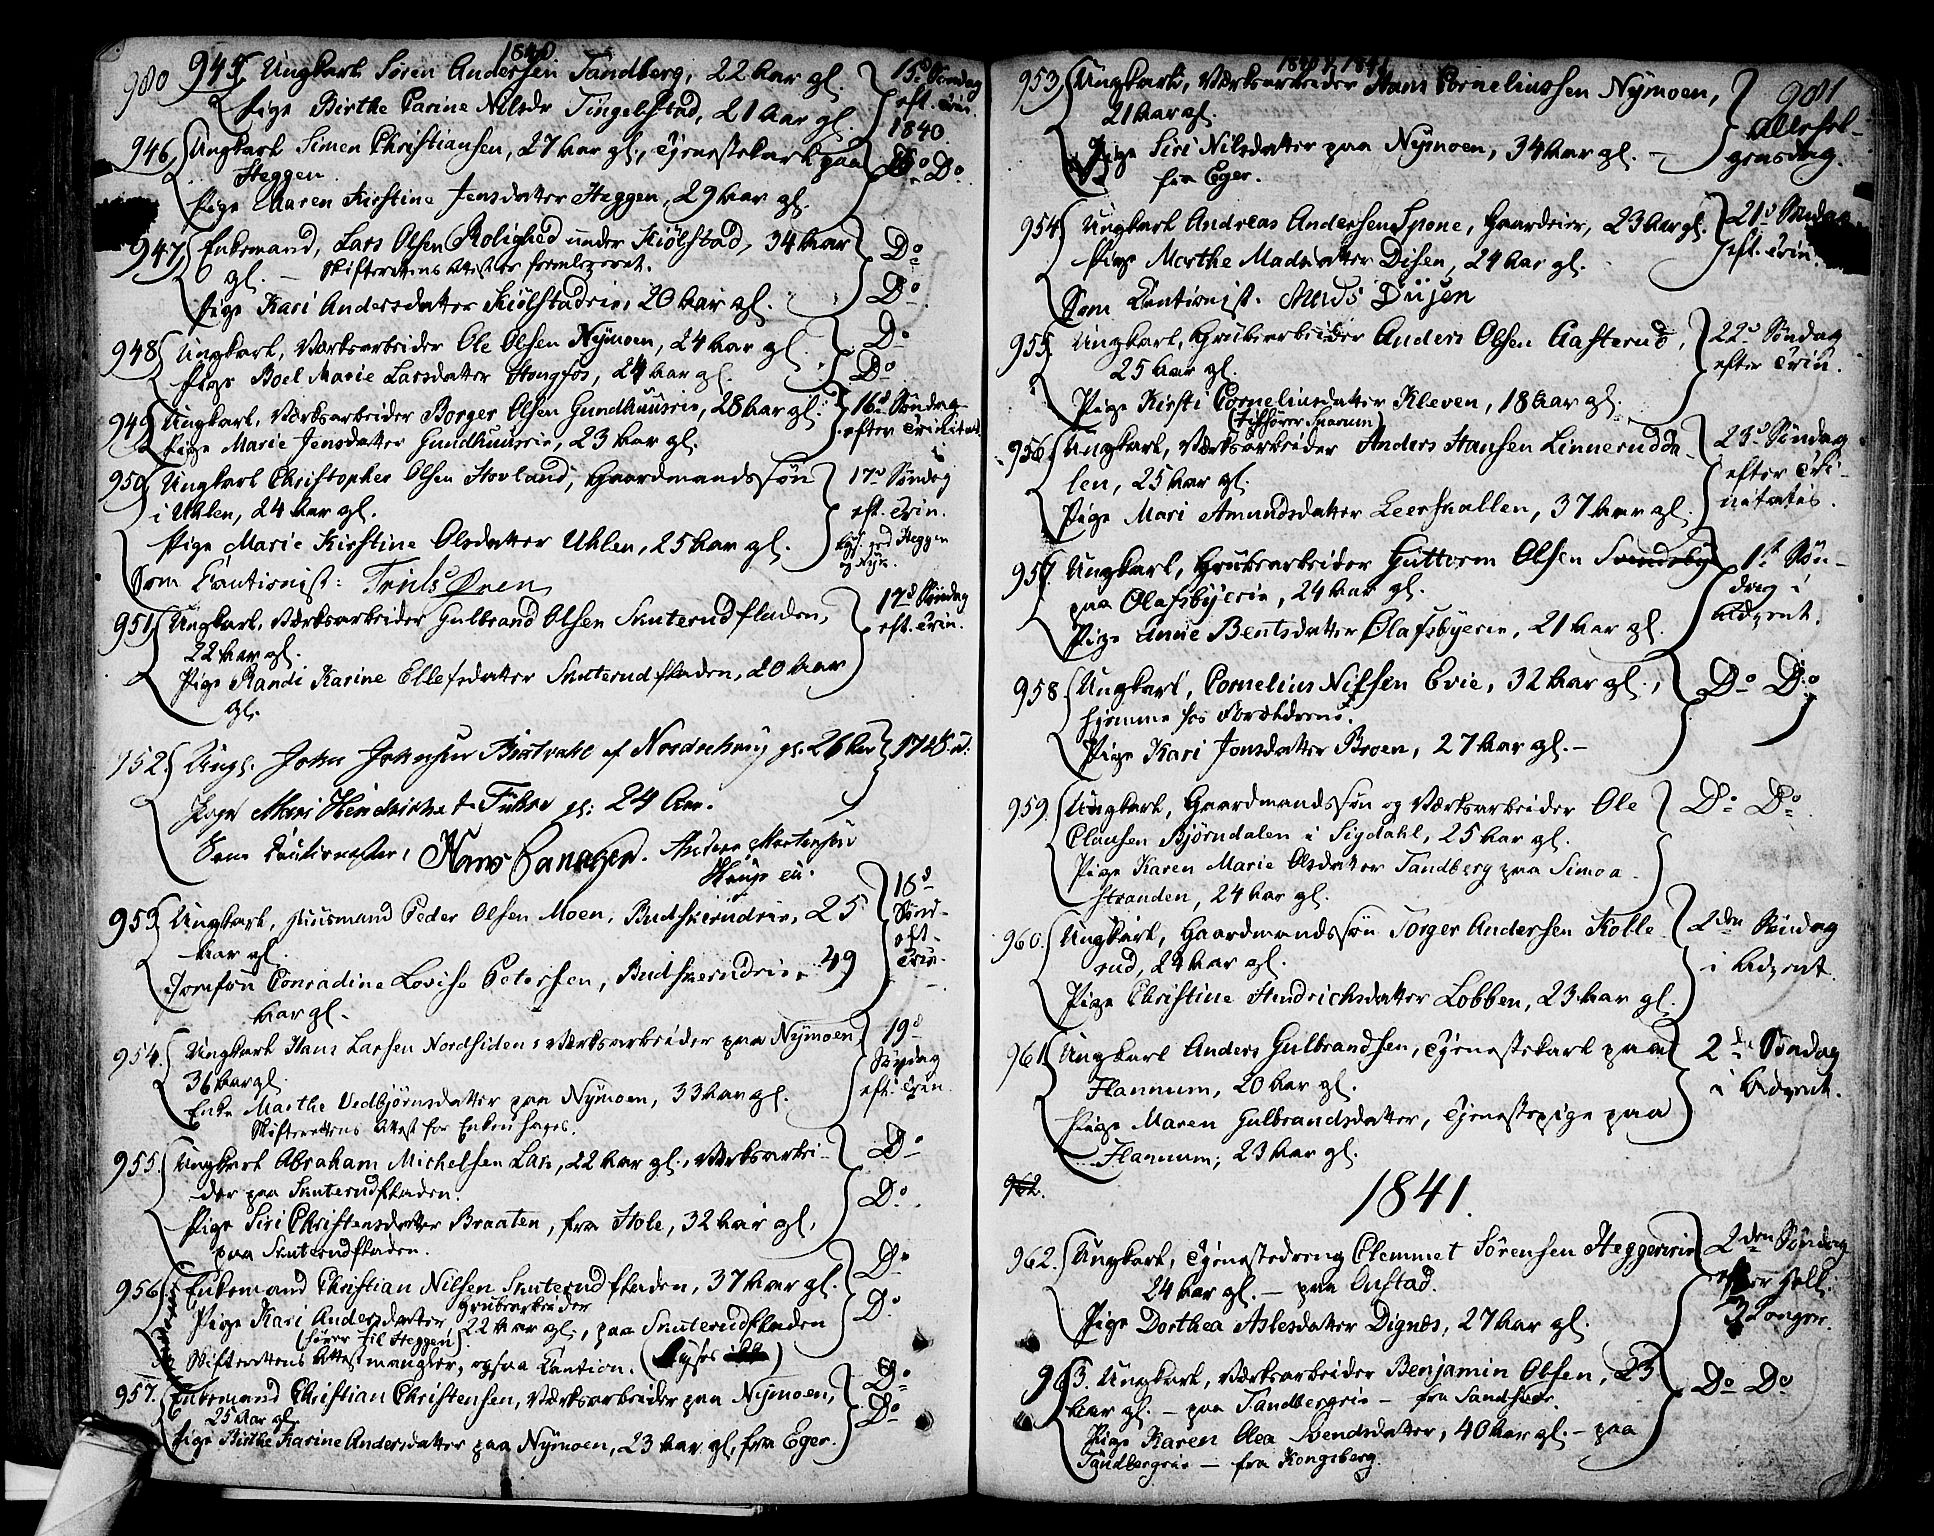 1840
980
945. Ungkarl Søren Andersen Tandberg, 22 Aar gl.
Pige Birthe Carine Nilsdr Tingelstad, 21 Aar gl.
15d Søndag
eft. Trin.
1840.
946. Ungkarl Simen Christiansen, 27 Aar gl., Tjenestekarl paa
Heggen
Pige Maren Kirstine Jensdatter Heggen, 29 Aar gl.
Do Do
947. Enkemand, Lars Olsen Rolighed under Kiølstad, 34 Aar
gl. — Skifterettens Attest er foreleveret.
Pige Kari Andersdatter Kiølstadeie, 20 Aar gl.
Do
Do
948. Ungkarl, Værksarbeider Ole Olsen Nymoen, 24 Aar gl.
Pige Boel Marie Larsdatter Hongfos, 24 Aar gl.
Do
Do
949. Ungkarl, Værksarbeider Borger Olsen Gundhuuseie, 28 Aar gl.
Pige Marie Jensdatter Gundhuuseie, 23 Aar gl.
16d Søndag
efter Trinitat.
950. Ungkarl Christopher Olsen Hovland, Gaardmandssøn
i Uhlen, 24 Aar gl.
Pige Marie Kirstine Olsdatter Uhlen, 25 Aar gl.
Som Cautionist: Truls Øren
17d Søndag
eft. Trin.
951. Ungkarl, Værksarbeider Gulbrand Olsen Snuterudfladen,
22 Aar gl.
Pige Randi Karine Ellefsdatter Snuterudfladen, 20 Aar
gl.
17d Søndag
eft. Trin.
952. Ungk. John Johnsen af gl. 26 Aar
Pige gl: 24 Aar.
Som Cautionister, Hans
953. Ungkarl, Huusmand Peder Olsen Moen, Budskerudeie, 25
Aar gl.
Jomfru Conradine Lovise Petersen, Budskerudeie, 49
Aar gl.
18d
Sønd.
eft.
Trin.
954. Ungkarl Hans Larsen Nordsiden, Værksarbeider paa Nymoen
36 Aar gl.
Enke Marthe Vedbjørnsdatter paa Nymoen, 33 Aar gl.
Skifterettens Attest for Enken haves.
19d
Søndag
eft. Trin.
955. Ungkarl Abraham Michelsen Lars, 22 Aar gl., Værksarbei-
der paa Snuterudfladen.
Pige Siri Christensdatter Braaten, fra Hole, 32 Aar gl,
paa Snuterudfladen.
Do
Do
956. Enkemand Christian Nilsen Snuterudfladen, 37 Aar gl.
Grubearbeider
Pige Kari Andersdatter 22 Aar gl., paa Snuterudfladen
(hører til Heggen).
Skifterettens Attest mangler, ogsaa Caution.
Do
Do
957. Enkemand Christian Christensen, Værksarbeider paa Nymoen,
25 Aar gl.
Pige Birthe Karine Andersdatter paa Nymoen, 23 Aar gl, fra Eger.
Do
Do
1840 & 1841
981
953. Ungkarl, Værksarbeider Hans Corneliussen Nymoen,
21 Aar gl.
Pige Siri Nilsdatter paa Nymoen, 34 Aar gl. —
fra Eger.
Allehel-
gensdag.
954. Ungkarl Andreas Andersen Spone, Gaardeier, 23 Aar gl.
Pige Marthe Madsdatter Disen, 24 Aar gl.
Som Cautionist. Mads Diisen
21d Søndag
eft. Trin.
955. Ungkarl, Grubearbeider Anders Olsen Aasterud,
25 Aar gl.
Pige Kirsti Corneliusdatter Kleven, 18 Aar gl.
(tilhører Snarum)
22d Søndag
efter Trin.
956. Ungkarl, Værksarbeider Anders Hansen Linnerudda-
len, 25 Aar gl.
Pige Mari Amundsdatter Leershallen, 37 Aar gl.
23d Søndag
efter Tri-
nitatis.
957. Ungkarl, Grubearbeider Guttorm Olsen
paa Olafsbyeeie, 24 Aar gl.
Pige Anne Bentsdatter Olafsbyeeie, 21 Aar gl.
1ste Søn-
dag i
Advent.
958. Ungkarl, Cornelius Nilsen Evie, 32 Aar gl.,
hjemme hos Forældrene.
Pige Kari Jonsdatter Broen, 27 Aar gl. —
Do Do
959. Ungkarl, Gaardmandssøn og Værksarbeider Ole
Clausen Bjørndalen i Sigdahl, 25 Aar gl.
Pige Karen Marie Olsdatter Tandberg paa Simoa-
stranden, 24 Aar gl.
Do Do
960. Ungkarl, Gaardmandssøn Torger Andersen Kolle-
rud, 24 Aar gl.
Pige Christine Hendrichsdatter Lobben, 23 Aar gl.
2den Søndag
i Advent.
961. Ungkarl Anders Gulbrandsen, Tjenestekarl paa
Flannum, 20 Aar gl.
Pige Maren Gulbrandsdatter, Tjenestepige paa
Flannum, 23 Aar gl.
2de Søndag
i Advent.
962.
1841.
962. Ungkarl, Tjenestedreng Clemmet Sørensen Heggeneie
24 Aar gl. — paa Enstad.
Pige Dorthea Aslesdatter Dignæs, 27 Aar gl.
2den Søndag
efter Hell.
3 Konger.
963. Ungkarl, Værksarbeider Benjamin Olsen, 23
Aar gl. — paa Tandbergeie — fra Sandsvær.
Pige Karen Olea Svendsdatter, 40 Aar gl. — paa
Tandbergeie — fra Kongsberg.
Do Do